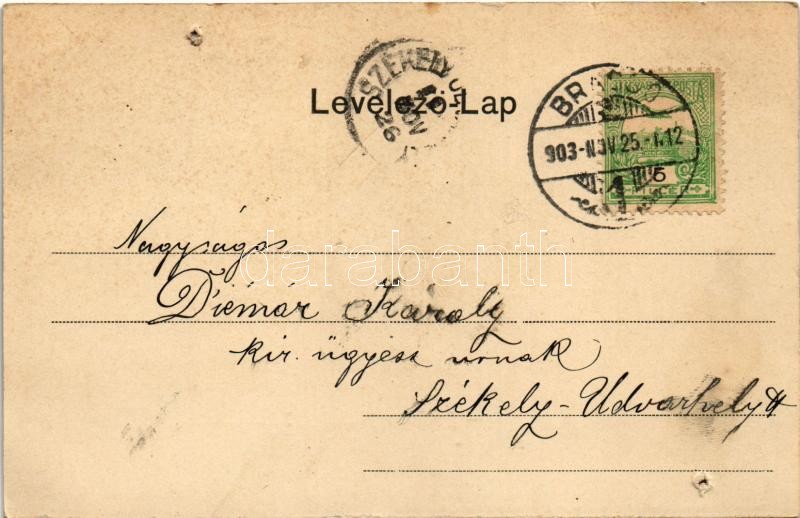 Levelező-Lap
SZÉKELYUD
NOV
26
BRASSÓ
903-NOV.25.-1.12
1
5
Nagyságos
Diémár Károly
kir. ügyész urnak
Székely-Udvarhelytt
darabanth